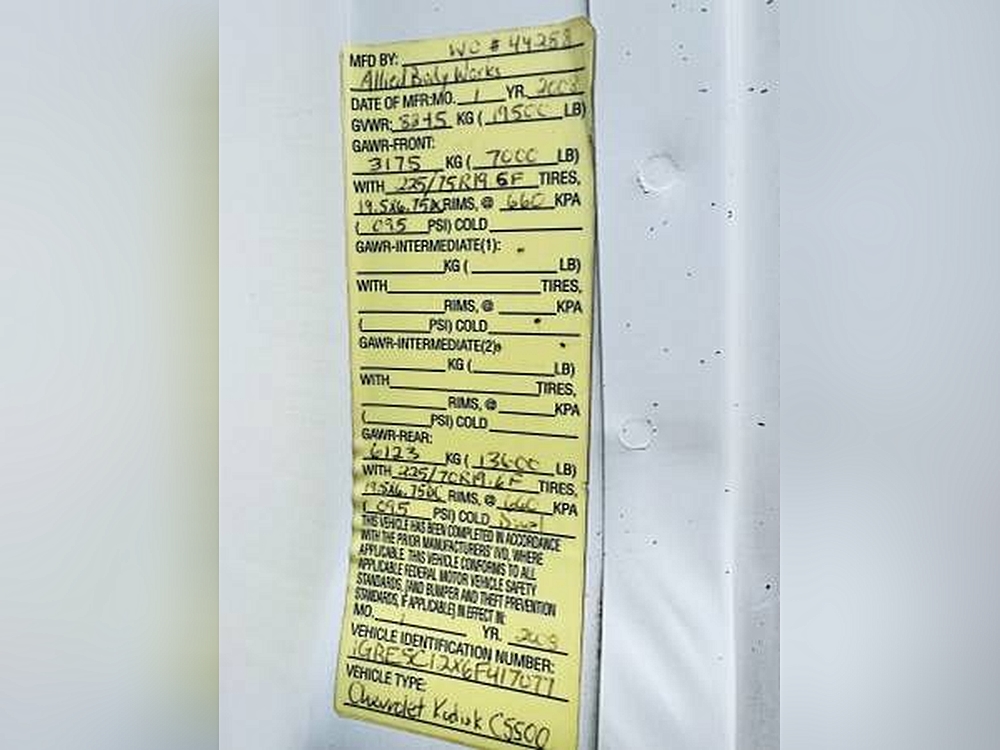 WO # 44258
MFD BY:
Allied Body Works
DATE OF MFR:MO. 1 YR. 2008
GVWR: 8845 KG ( 19500 LB)
GAWR-FRONT:
3175 KG ( 7000 LB)
WITH 225/75R19.5F TIRES,
19.5x6.75 RIMS, @ 660 KPA
( 095 PSI) COLD
GAWR-INTERMEDIATE(1):
KG ( LB)
WITH TIRES,
RIMS, @ KPA
( PSI) COLD
GAWR-INTERMEDIATE(2):
KG ( LB)
WITH TIRES,
RIMS, @ KPA
( PSI) COLD
GAWR-REAR:
6123 KG ( 13600 LB)
WITH 225/70R19.5F TIRES,
19.5x6.75DC RIMS, @ 660 KPA
( 095 PSI) COLD Dual
THIS VEHICLE HAS BEEN COMPLETED IN ACCORDANCE
WITH THE PRIOR MANUFACTURERS' IVD, WHERE
APPLICABLE. THIS VEHICLE CONFORMS TO ALL
APPLICABLE FEDERAL MOTOR VEHICLE SAFETY
STANDARDS, [AND BUMPER AND THEFT PREVENTION
STANDARDS, IF APPLICABLE] IN EFFECT IN:
MO. 1 YR. 2008
VEHICLE IDENTIFICATION NUMBER:
1GBE5C12X6F417077
VEHICLE TYPE:
Chevrolet Kodiak C5500